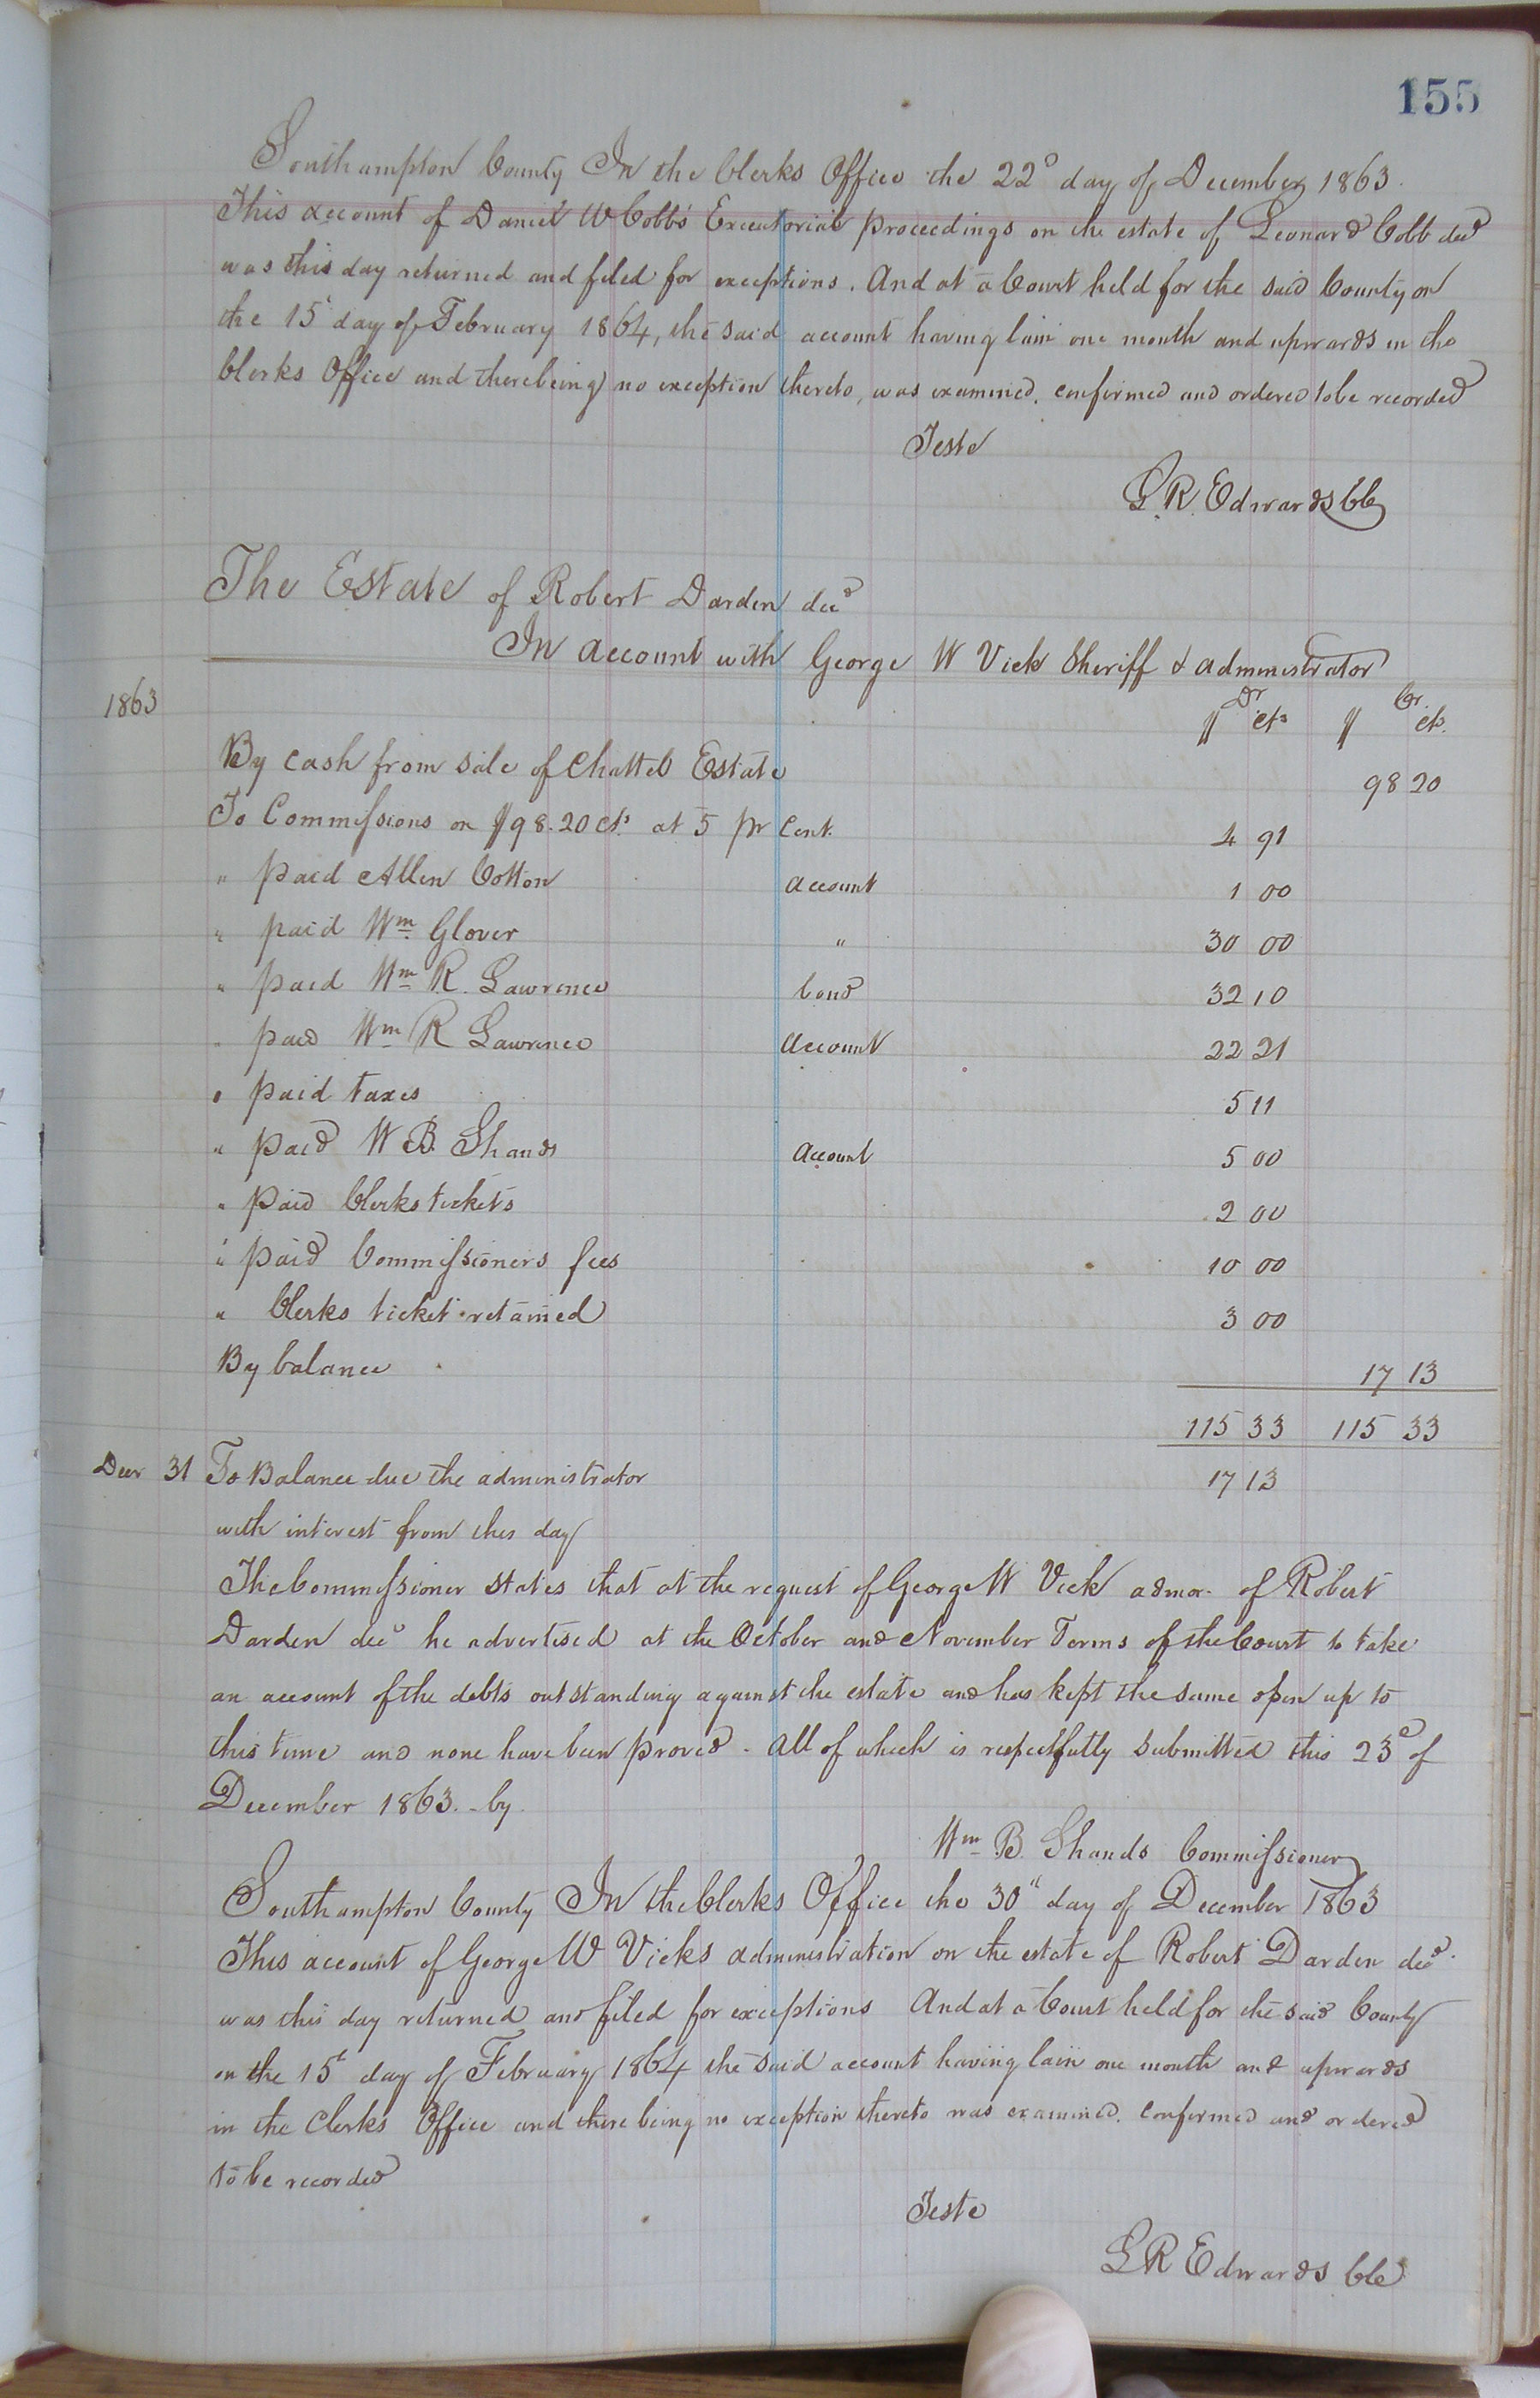 155
Southampton County In the Clerks Office the 22d day of December 1863.
This account of Daniel W Cobb's Executorial proceedings on the estate of Leonard Cobb decd
was this day returned and filed for exceptions. And at a Court held for the said County on
the 15t day of February 1864, the said account having lain one month and upwards in the
Clerks Office and there being no exception thereto, was examined, confirmed and ordered to be recorded
Teste
L. R. Edwards Clk
The Estate of Robert Darden decd
In account with George W Vick Sheriff & administrator
1863 Dr Cr.
$ cts $ cts.
By cash from sale of Chattel Estate 98 20
To Commissions on $98.20 cts. at 5 pr Cent. 4 91
" paid Allen Cotton account 1 00
" paid Wm. Glover " 30 00
" paid Wm R. Lawrence bond 32 10
" paid Wm R Lawrence account 22 21
" paid taxes 5 11
" paid W B. Shands account 5 00
" paid Clerks tickets 2 00
" paid Commissioners fees 10 00
" Clerks ticket retained 3 00
By balance 17 13
115 33 115 33
Decr 31 To Balance due the administrator 17 13
with interest from this day
The Commissioner states that at the request of George W Vick admor. of Robert
Darden decd he advertised at the October and November Terms of the Court to take
an account of the debts outstanding against the estate and has kept the same open up to
this time and none have been proved. All of which is respectfully submitted this 23d of
December 1863. by
Wm B. Shands Commissioner
Southampton County In the Clerks Office the 30th day of December 1863
This account of George W Vicks administration on the estate of Robert Darden decd.
was this day returned and filed for exceptions And at a Court held for the said County
on the 15t day of February 1864 the said account having lain one month and upwards
in the Clerks Office and there being no exception thereto was examined. confirmed and ordered
to be recorded
Teste
L R Edwards Clk